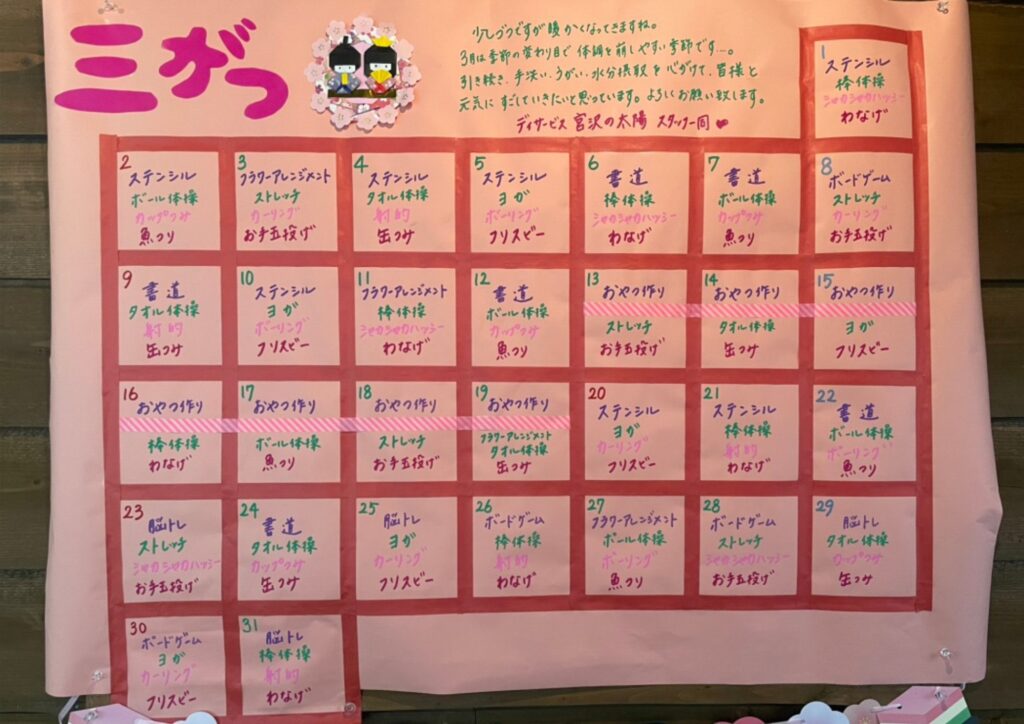 三がつ
少しづつですが暖かくなってきますね。
3月は季節の変わり目で体調を崩しやすい季節です…。
引き続き、手洗い、うがい、水分摂取を心がけて、皆様と
元気にすごしていきたいと思っています。よろしくお願い致します。
デイサービス 宮沢の太陽 スタッフ一同
1
ステンシル
棒体操
シャカシャカハッシー
わなげ
2
ステンシル
ボール体操
カップつみ
魚つり
3
フラワーアレンジメント
ストレッチ
カーリング
お手玉投げ
4
ステンシル
タオル体操
射的
缶つみ
5
ステンシル
ヨガ
ボーリング
フリスビー
6
書道
棒体操
シャカシャカハッシー
わなげ
7
書道
ボール体操
カップつみ
魚つり
8
ボードゲーム
ストレッチ
カーリング
お手玉投げ
9
書道
タオル体操
射的
缶つみ
10
ステンシル
ヨガ
ボーリング
フリスビー
11
フラワーアレンジメント
棒体操
シャカシャカハッシー
わなげ
12
書道
ボール体操
カップつみ
魚つり
13
おやつ作り
ストレッチ
お手玉投げ
14
おやつ作り
タオル体操
缶つみ
15
おやつ作り
ヨガ
フリスビー
16
おやつ作り
棒体操
わなげ
17
おやつ作り
ボール体操
魚つり
18
おやつ作り
ストレッチ
お手玉投げ
19
おやつ作り
フラワーアレンジメント
タオル体操
缶つみ
20
ステンシル
ヨガ
カーリング
フリスビー
21
ステンシル
棒体操
射的
わなげ
22
書道
ボール体操
ボーリング
魚つり
23
脳トレ
ストレッチ
シャカシャカハッシー
お手玉投げ
24
書道
タオル体操
カップつみ
缶つみ
25
脳トレ
ヨガ
カーリング
フリスビー
26
ボードゲーム
棒体操
射的
わなげ
27
フラワーアレンジメント
ボール体操
ボーリング
魚つり
28
ボードゲーム
ストレッチ
シャカシャカハッシー
お手玉投げ
29
脳トレ
タオル体操
カップつみ
缶つみ
30
ボードゲーム
ヨガ
カーリング
フリスビー
31
脳トレ
棒体操
射的
わなげ